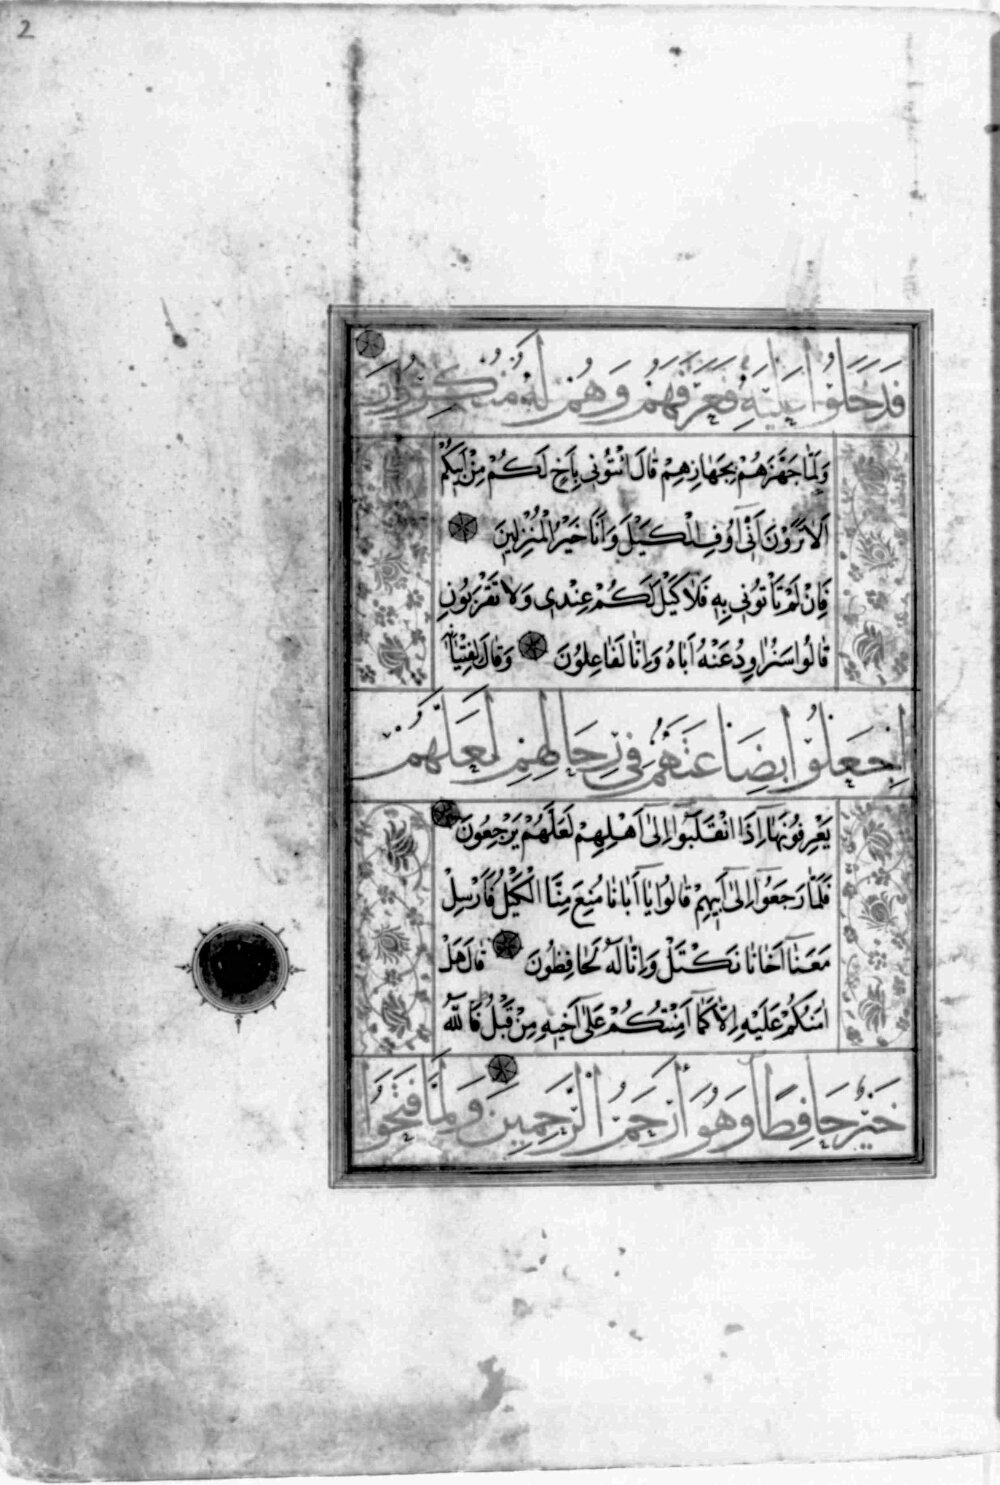 2
فَدَخَلُوا عَلَيْهِ فَعَرَفَهُمْ وَهُمْ لَهُ مُنْكِرُونَ
وَلَمَّا جَهَّزَهُمْ بِجَهَازِهِمْ قَالَ ائْتُونِي بِأَخٍ لَكُمْ مِنْ أَبِيكُمْ
أَلَا تَرَوْنَ أَنِّي أُوفِي الْكَيْلَ وَأَنَا خَيْرُ الْمُنْزِلِينَ
فَإِنْ لَمْ تَأْتُونِي بِهِ فَلَا كَيْلَ لَكُمْ عِنْدِي وَلَا تَقْرَبُونِ
قَالُوا سَنُرَاوِدُ عَنْهُ أَبَاهُ وَإِنَّا لَفَاعِلُونَ وَقَالَ لِفِتْيَانِهِ
اجْعَلُوا بِضَاعَتَهُمْ فِي رِحَالِهِمْ لَعَلَّهُمْ
يَعْرِفُونَهَا إِذَا انْقَلَبُوا إِلَى أَهْلِهِمْ لَعَلَّهُمْ يَرْجِعُونَ
فَلَمَّا رَجَعُوا إِلَى أَبِيهِمْ قَالُوا يَا أَبَانَا مُنِعَ مِنَّا الْكَيْلُ فَأَرْسِلْ
مَعَنَا أَخَانَا نَكْتَلْ وَإِنَّا لَهُ لَحَافِظُونَ قَالَ هَلْ
آمَنُكُمْ عَلَيْهِ إِلَّا كَمَا أَمِنْتُكُمْ عَلَى أَخِيهِ مِنْ قَبْلُ فَاللَّهُ
خَيْرٌ حَافِظًا وَهُوَ أَرْحَمُ الرَّاحِمِينَ وَلَمَّا فَتَحُوا